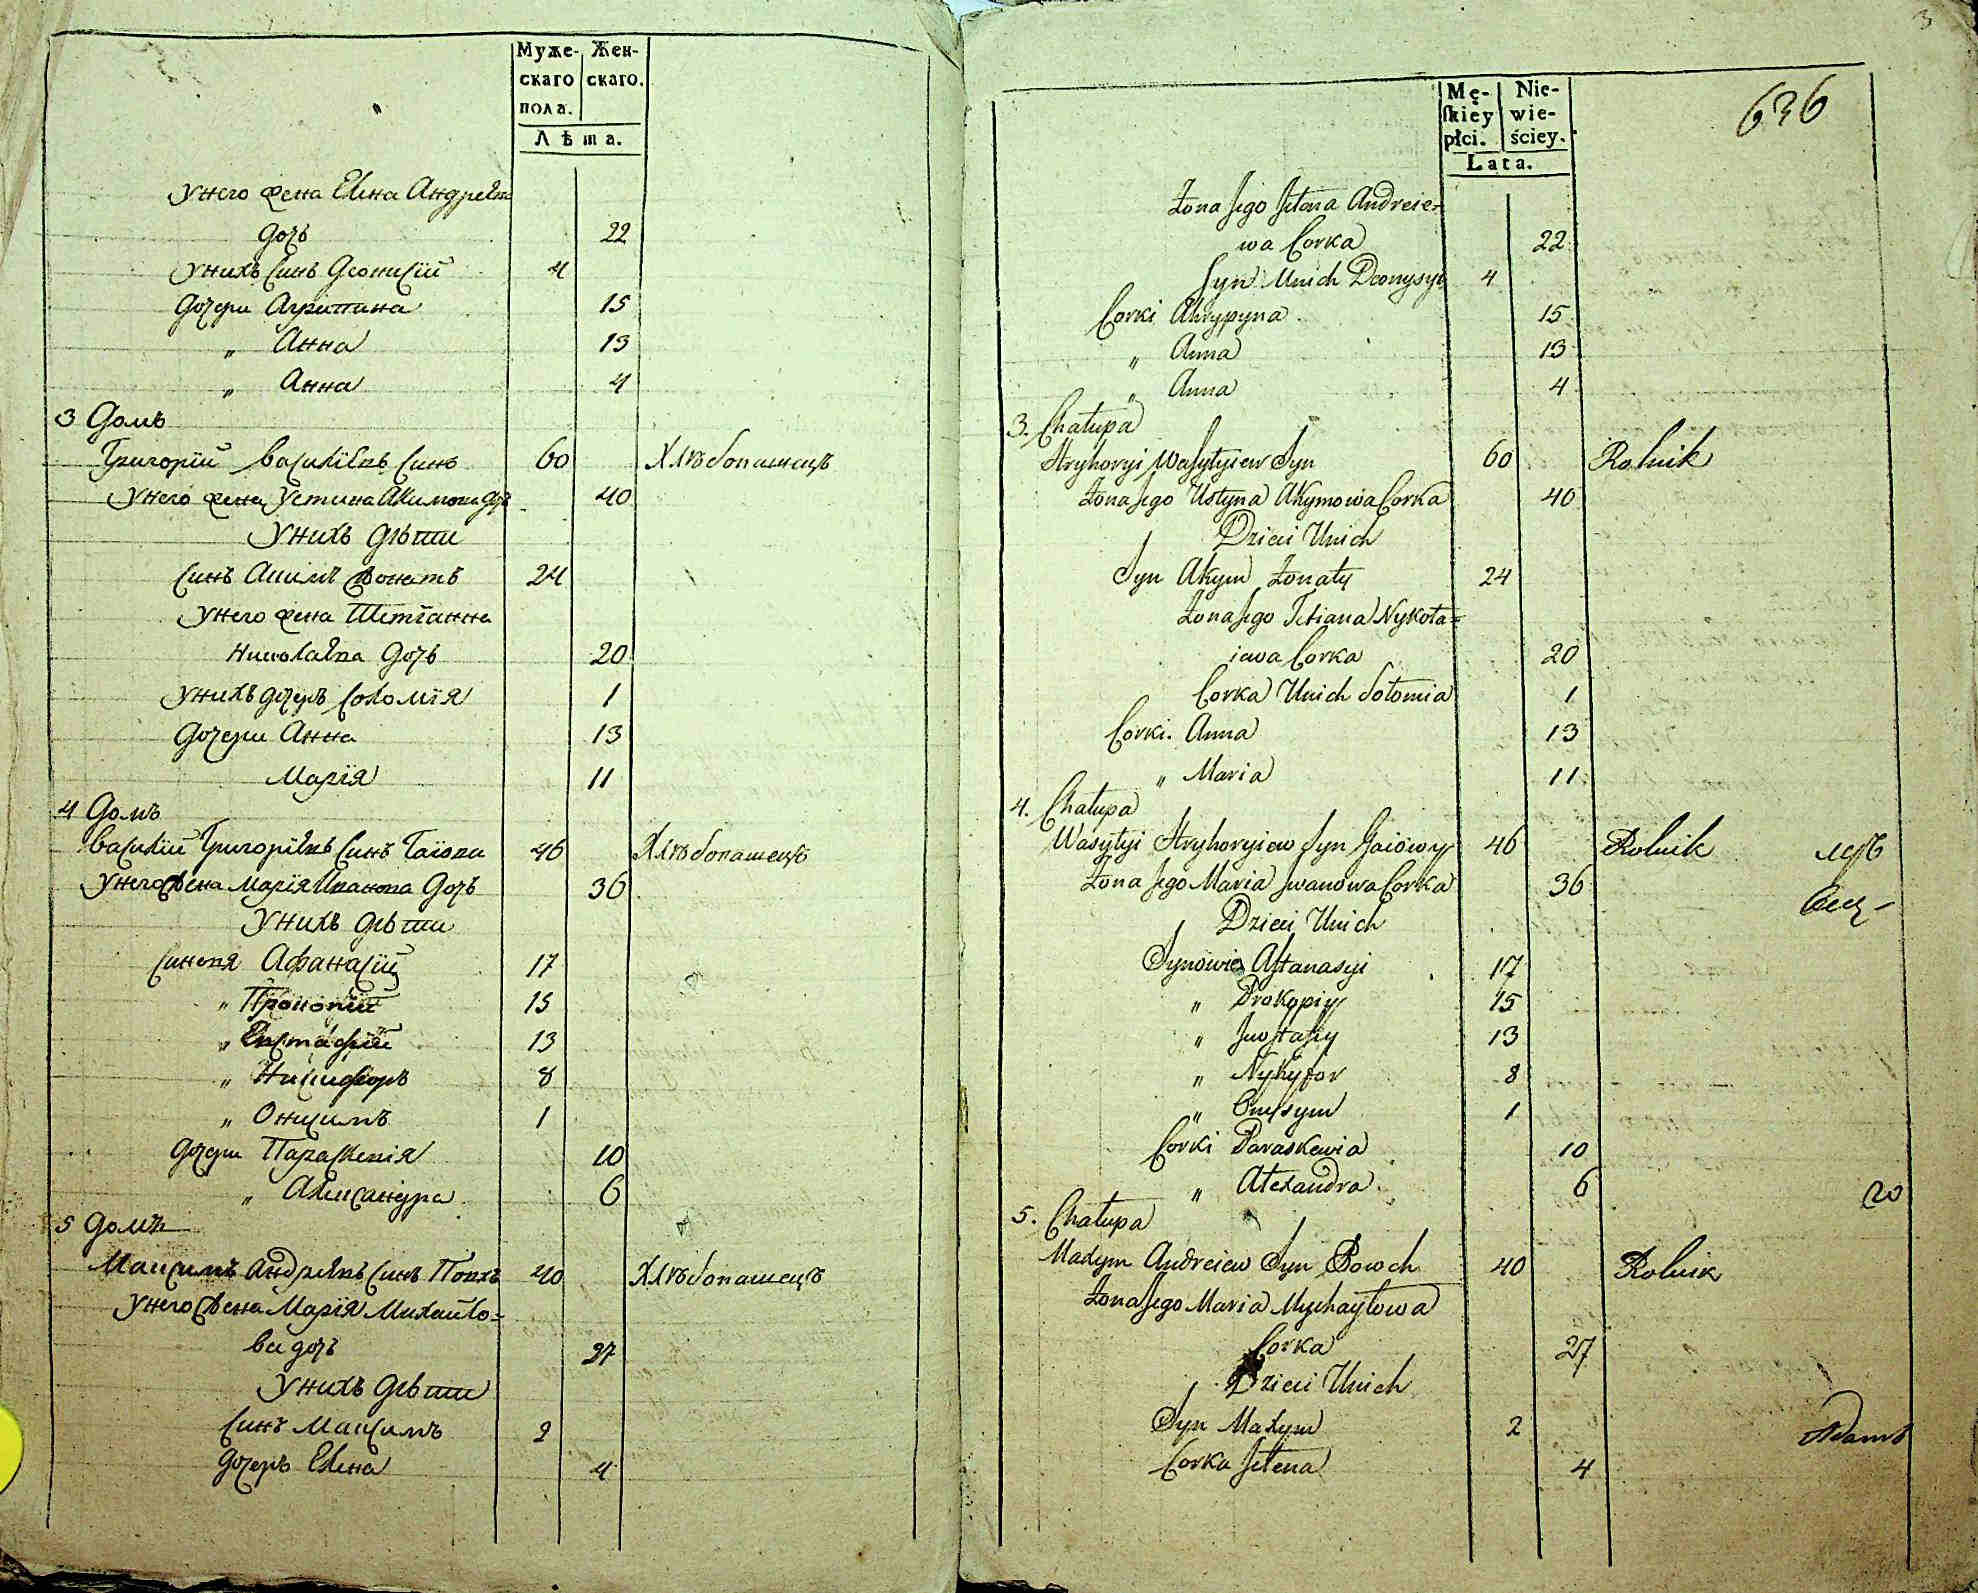 Муже-
скаго
пола.
Жен-
скаго.
Лѣта.
Унего жена Елена Андреѣва
дочь 22
Унихъ Синъ Деонисїй 4
Дочери Агрипина 15
„ Анна 13
„ Анна 4
3 Домъ
Григорїй Василїевъ Синъ 60 Хлѣбопашецъ
Унего жена Устина Акимова дочь 40
Унихъ дѣти
Синъ Акимъ Жонатъ 24
Унего жена Тетїанна
Николаева Дочь 20
Унихъ дочерь Соломїя 1
Дочери Анна 13
Марїя 11
4 Домъ
Василїй Григорїевъ Синъ Гаїови 46 Хлѣбопашецъ
Унего Жена Марїя Иванова Дочь 36
Унихъ дѣти
Синовя Афанасїй 17
„ Прокопїй 15
„ Евстафїй 13
„ Никифоръ 8
„ Онисимъ 1
Дочери Параскевїя 10
„ Александра 6
5 Домъ
Максимъ Андреевъ Синъ Повхъ 40 Хлѣбопашецъ
Унего Жена Марїя Михайло=
ва дочь 27
Унихъ Дѣти
Синъ Максимъ 2
Дочерь Елена 4
3
636
Mę-
skiey
płci.
Nie-
wie-
ściey.
Lata.
Żona Jego Jełena Andreie-
wa Corka 22
Syn Unich Deonysyi 4
Corki Ahrypyna 15
„ Anna 13
„ Anna 4
3. Chałupa
Hryhoryi Wasylyiew Syn 60 Rolnik
Żona Jego Ustyna Akymowa Corka 40
Dzieci Unich
Syn Akym Żonaty 24
Żona Jego Tetiana Nykoła=
iewa Corka 20
Corka Unich Sołomia 1
Corki Anna 13
„ Maria 11
4. Chałupa
Wasyłyi Hryhoryiew Syn Gaiowy 46 Rolnik
Żona Jego Maria Iwanowa Corka 36
Dzieci Unich
Synowie Aftanasyi 17
„ Prokopiy 15
„ Jwstafiy 13
„ Nykyfor 8
„ Onysym 1
Corki Paraskewia 10
„ Alexandra 6
5. Chałupa
Maxym Andreiew Syn Powch 40 Rolnik
Żona Jego Maria Mychayłowa
Corka 27
Dzieci Unich
Syn Maxym 2
Corka Jełena 4